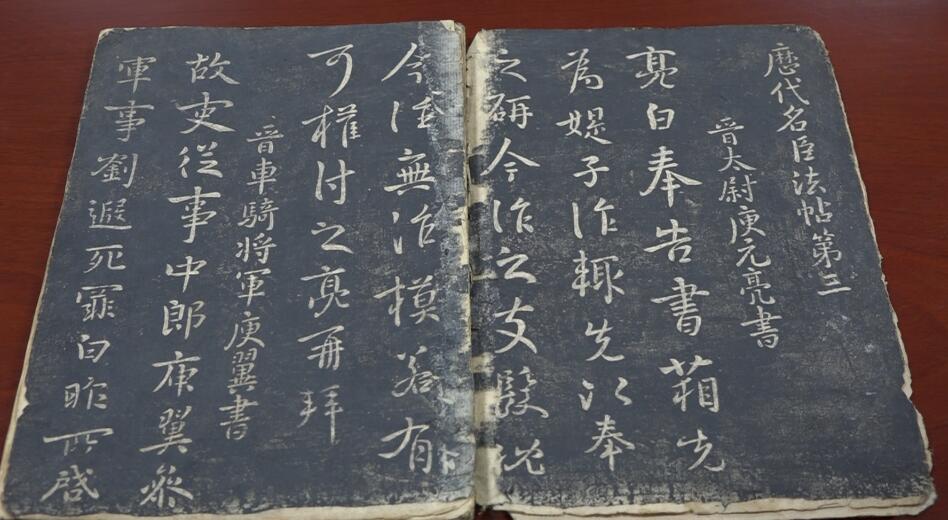 歷代名臣法帖第三
晉太尉庾元亮書
亮白奉告書箱先
為媞子作輒先以奉
之研今作之文
今 無治模若有
可權付之亮再拜
晉車騎將軍庾翼書
故吏從事中郎庾翼參
軍事劉遐死罪白昨所啓